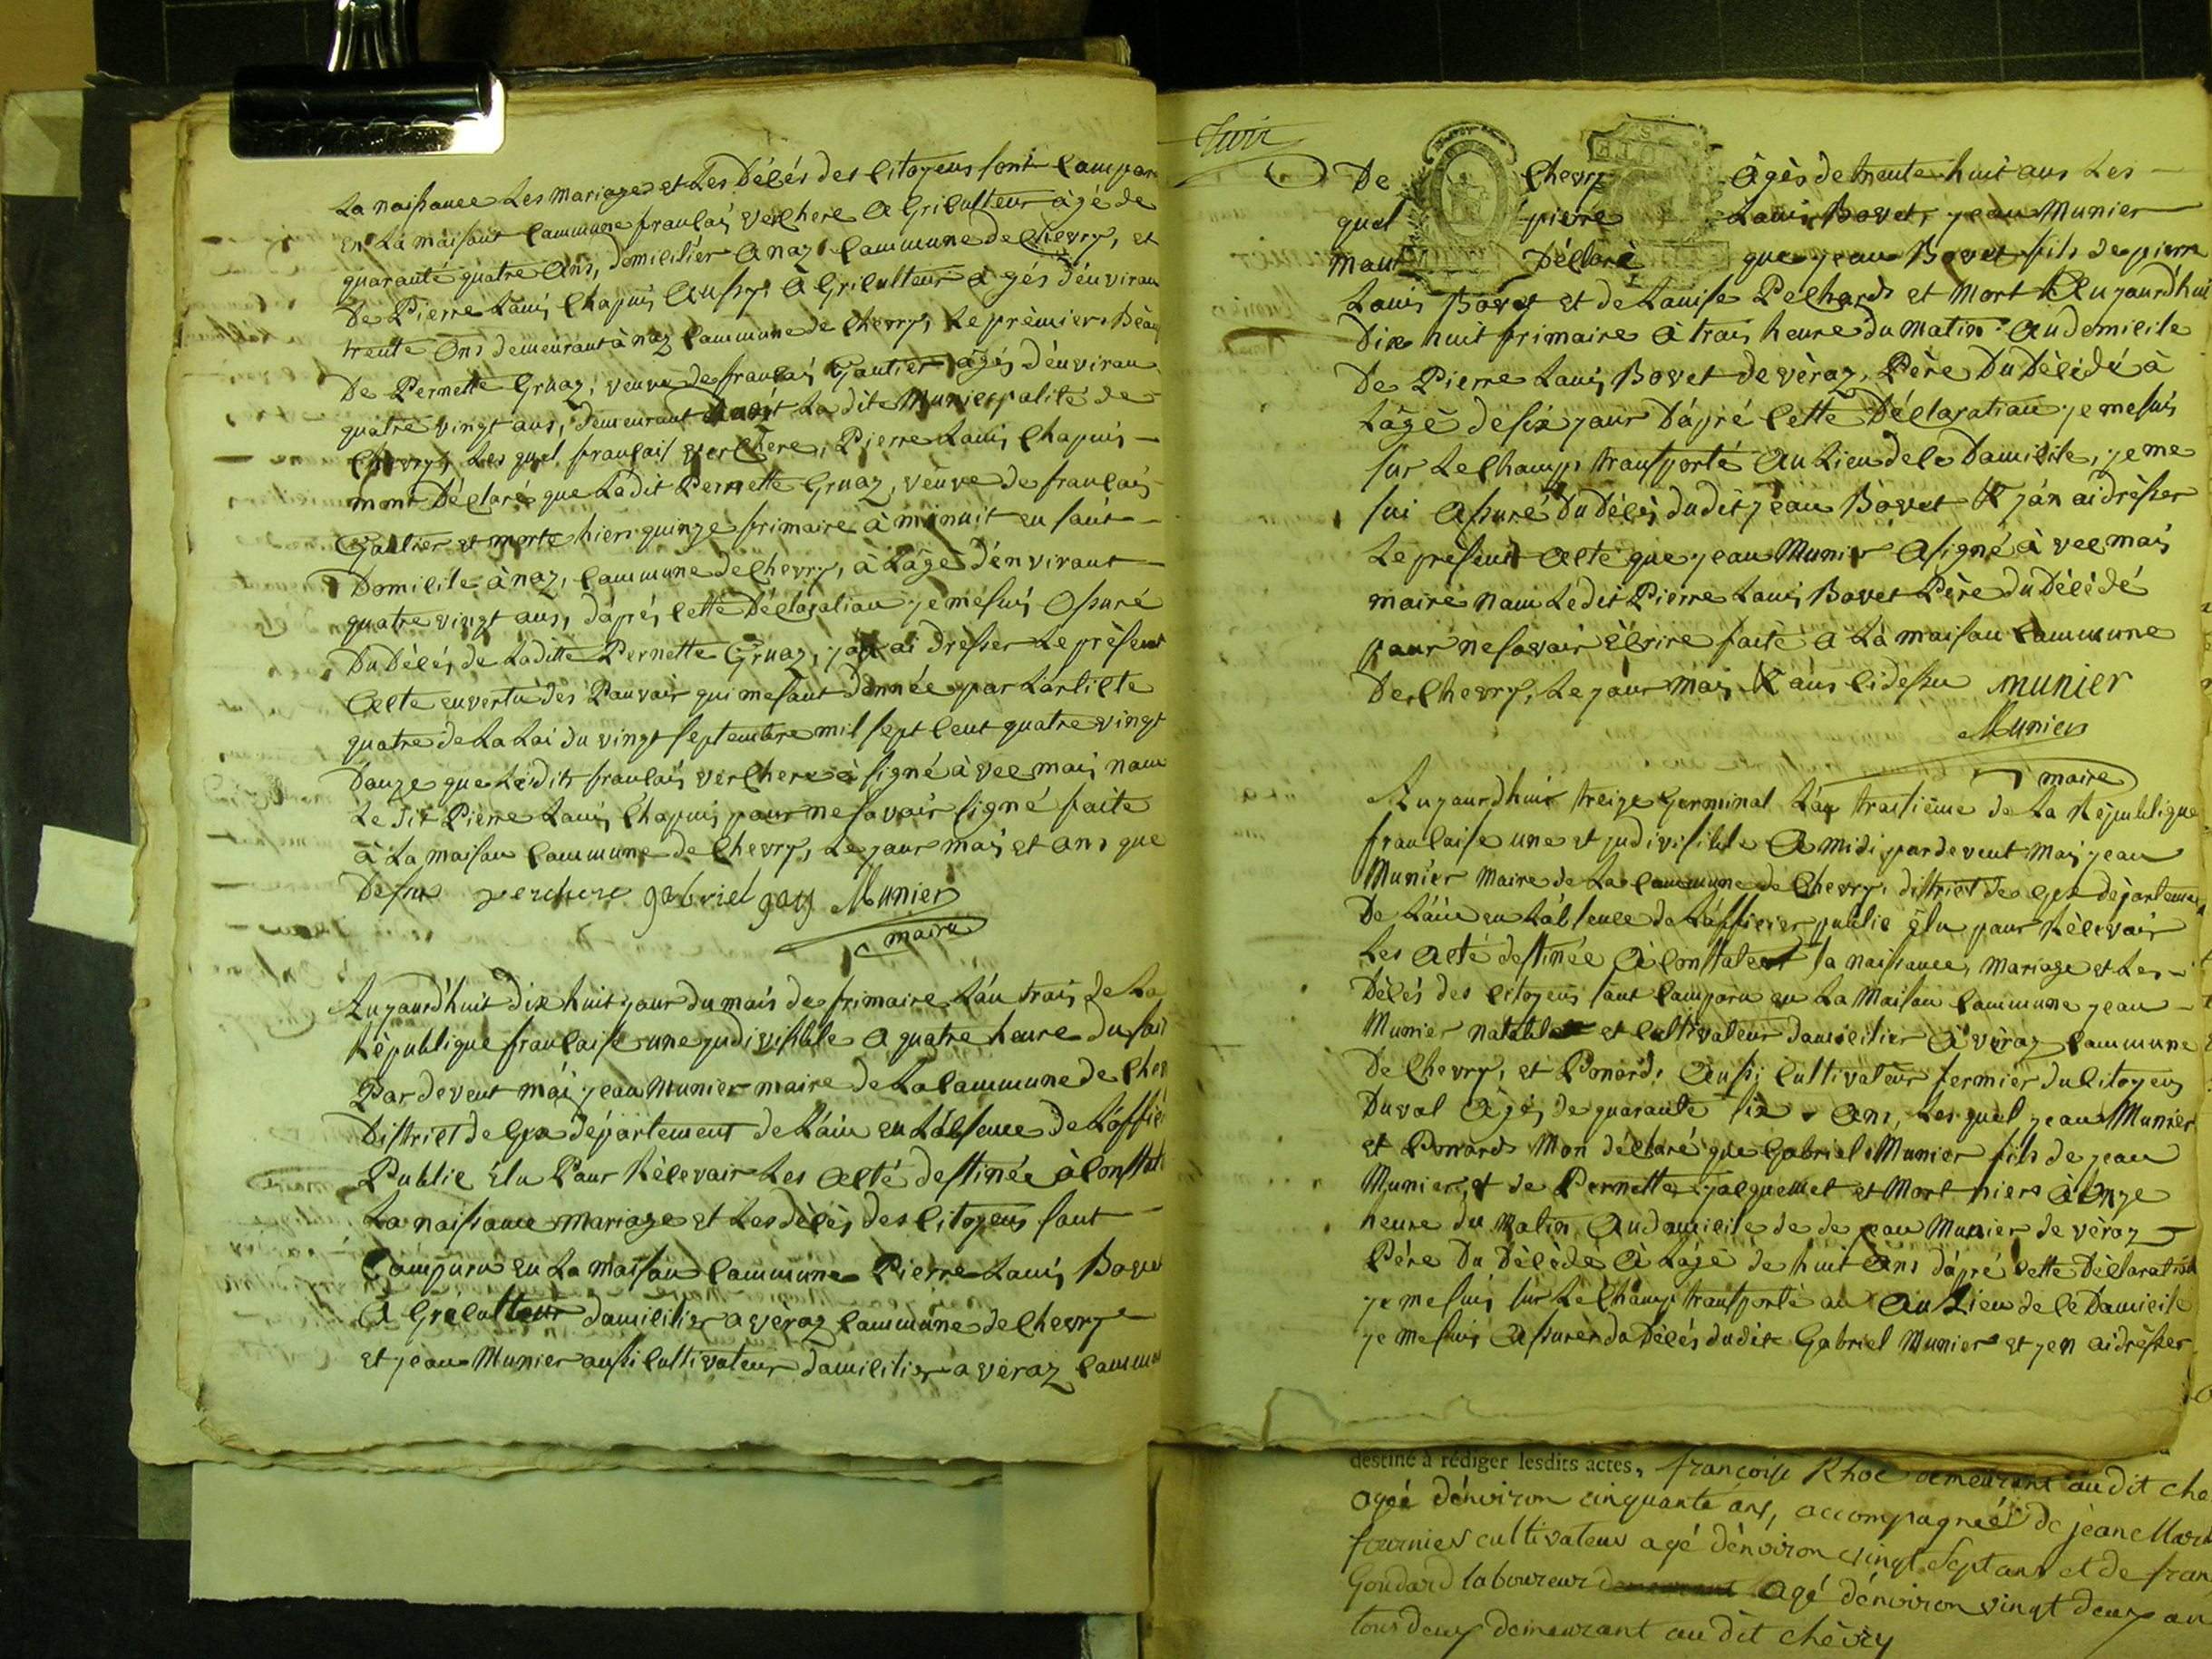 La naissance Les mariages et Les Décés des Citoyens sont Compar
en La maisont Commune françois verchere Agriculteur àgé de
quarante quatre Ans, domicilier A naz Commune de Chevry, et
De Pierre Louis Chapuis Aussy Agriculteur àgés d'environ
trente Ans demeurant à naz Commune de Chevry, Le prèmier Beau
De Pernette Gruaz, veuve de françois Gautier àgés d'environ
quatre vingt ans, demeurant La dite Municipalité de
Chevry, Les quel françois verchère, Pierre Louis Chapuis
mont Déclaré que Ladit Pernette Gruaz, veuve de françois
Gautier et morte hier quinze frimaire à minuit en sont
Domicile à naz, Commune de Chevry, à L'àge d'environt
quatre vingt ans, d'àprés Cette Déclaration je me suis Assuré
Du Décés de Laditte Pernette Gruaz, j'an ai dresser Le présent
Acte en vertu des Pouvoir qui me sont donnée par L'article
quatre de La Loi du vingt septembre mil sept Cent quatre vingt
Douze que Ledit françois verchere à signé àvec moi, non
Le dit Pierre Louis Chapuis pour ne savoir signé faite
à La maison Commune de Chevry, Le jour mois et Ans que
Dessus verchere gabriel gay Munier
maire
Aujourd'huit dix huit jour du mois de frimaire L'an trois de La
République française une judivisible A quatre heure du soir
Par devent moi jean Munier maire de La Commune de Chev
District de Gex département de L'ain en L'absence de L'offici
Public Elu Pour Rècevoir Les Acté destinée à Constat
La naissance mariage et Les décès des Citoyens sont
Comparu en La maison Commune Pierre Louis Bovet
Agriculteur domicilier a vèraz Commune de Chevry
et jean Munier aussi Cultivateur domicilier a vèraz Commu
De Chevry àgés de trente huit ans Les
quel pierre Louis Bovet, jean Munier
mont Déclaré que jean Bovet fils de pierre
Louis Bovet et de Louise Pechard et Mort Aujourd'hui
Dix huit frimaire à trois heure du matin Au domicile
De Pierre Louis Bovet de vèraz, Père Du Dècédé à
L'àge de six jour D'àpré Cette Déclaration je me suis
sur Le Champ transporté Au Lieu de le Domicile, je me
sui Assuré Du Décés dudit jean Bovet Et j'an ai drèsser
Le present Acte que jean Munier A signé à vec moi
maire non Ledit Pierre Louis Bovet Père Du Décédé
pour ne savoir Ecrire faite A La maison Commune
De Chevry, Le jour mois Et ans Cidessu munier
Munier
maire
Aujourd'huit treize Germinal L'an troisième de La République
française une et judivisible A midi par devent Moi jean
Munier Maire de La Commune de Chevry, district de Gex départeme
De L'ain en L'absence de L'officier public Elu pour Rècevoir
Les Acté destinée à Constater La naissance, Mariage et Les
Décés des Citoyens sont Comparu en La Maison Commune jean
Munier notable et Cultivateur domicilier à vèraz Commune
De Chevry, et Ponard, Aussi Cultivateur fermier du Citoyen
Duval àgés de quarante six Ans, Les quel jean Munier
et Ponard Mon déclaré que Gabriel Munier fils de jean
Munier et de Pernette jacquemet et Mort hier à onze
heure du Matin Au domicile de de jean Munier de vèraz
Pére Du Décédé à L'àge de huit Ans d'àpré Cette Déclaration
je me suis sur Le Champ transporté au Au Lieu de le Domicile
je me suis Assurer du Décés dudit Gabriel Munier et j'en ai drèsser
destiné à rédiger lesdits actes, françoise Rhoe demeurant au dit che
ageé dénviron cinquante ans, accompagneé de jeane Mari
fournier cultivateur agé dénviron vingt Sept ans et de fran
Goudard laboureur agé dénviron vingt deux an
tous deux demeurant au dit chèvry